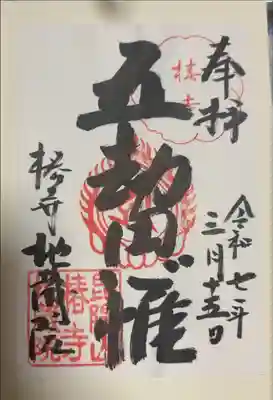 奉拝
令和七年
三月十五日
椿寺
五劫思惟
椿寺 地蔵院
昆陽山
椿寺
地蔵院